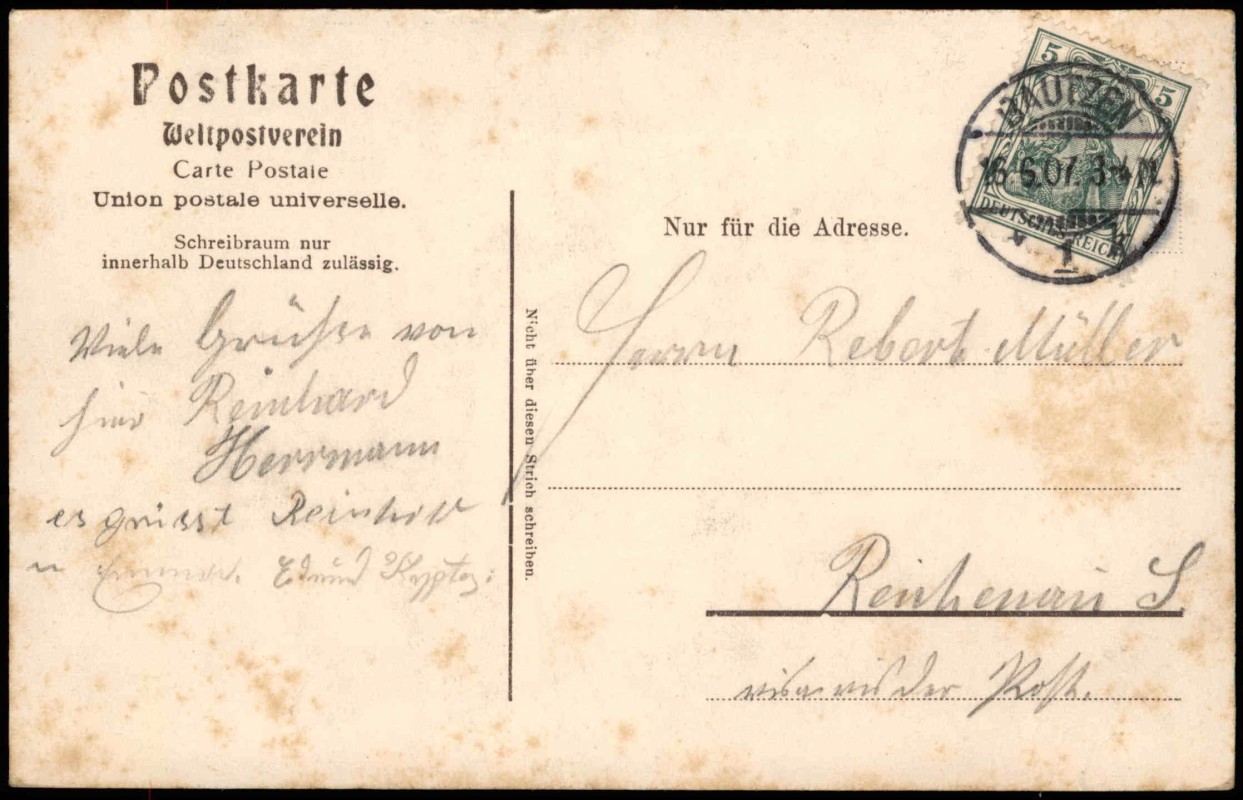 Postkarte
Weltpostverein
Carte Postale
Union postale universelle.
Schreibraum nur
innerhalb Deutschland zulässig.
Viele Grüsse von
hier Reinhard
Herrmann
es grüsst Reinhold
Edmund
Nicht über diesen Strich schreiben.
5 5
DEUTSCHES REICH
BAUTZEN
16.6.07. 3-4 N.
1
Nur für die Adresse.
Herrn Robert Müller
Reichenau S.
vis a vis der Post.